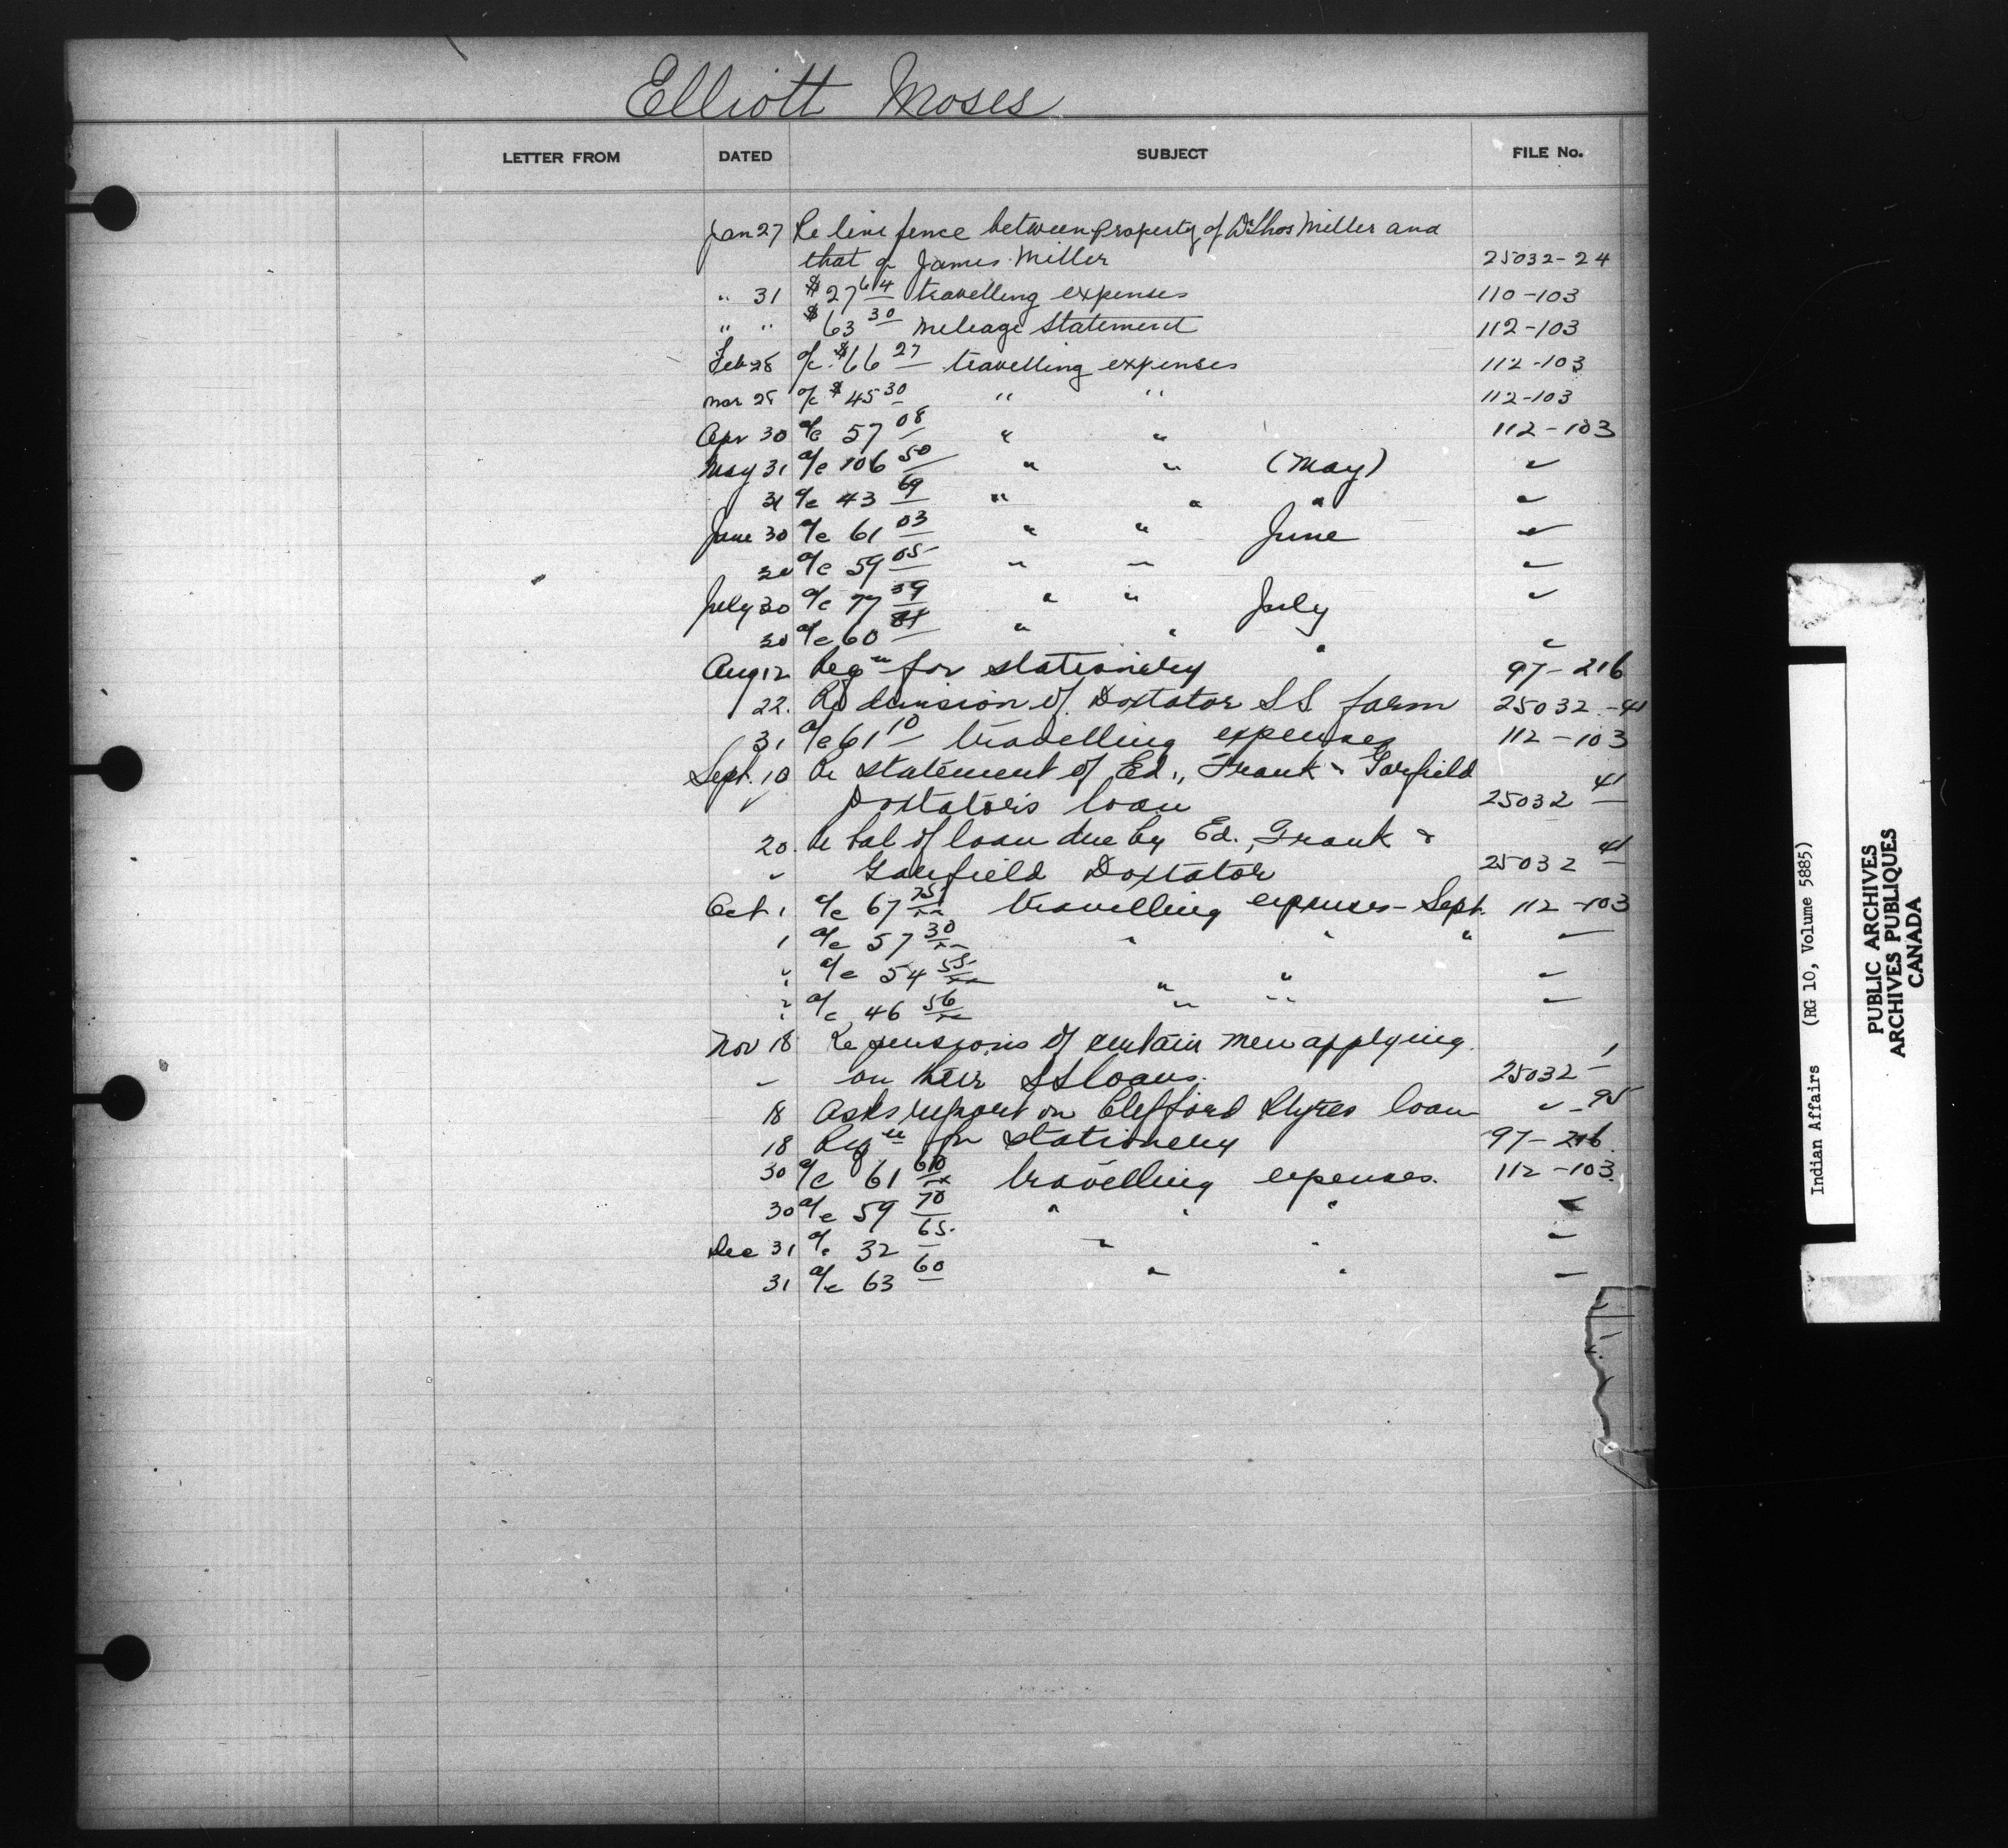 Elliott Moses
LETTER FROM DATED SUBJECT FILE No.
Jan 27 Re line fence between property of Thos Miller and
that of James Miller 25032-24
" 31 $27 64 travelling expenses 110-103
" " $63 30 mileage statement 112-103
Feb 28 a/c $66 27 travelling expenses 112-103
Mar 28 a/c $45 30 " " 112-103
Apr 30 a/c 57 08 " " 112-103
May 31 a/c 106 50 " " (May) "
31 a/c 43 69 " " " "
June 30 a/c 61 03 " " June "
30 a/c 59 05 " " "
July 30 a/c 77 39 " " July "
30 a/c 60 " " " "
Aug 12 Reqn for stationery 97-216
22. Re division of Doxtator SS farm 25032-41
31 a/c 61 10 travelling expenses 112-103
Sept. 10 Re statement of Ed., Frank & Garfield
" Doxtator's loan 25032 41
20. Re bal of loan due by Ed., Frank &
" Garfield Doxtator 25032 41
Oct 1 a/c 67 75 travelling expenses - Sept. 112-103
1 a/c 57 30 " " " "
" a/c 54 55 " " "
" a/c 46 56 " " "
Nov 18 Re pensions of certain men applying
" on their SS loans. 25032-1
18 Asks report on Clifford loan " -95
18 Reqn for stationery 97-216
30 a/c 61 60 travelling expenses. 112-103
30 a/c 59 70 " " " "
Dec 31 a/c 32 65 " " "
31 a/c 63 60 " " "
Indian Affairs (RG 10, Volume 5885)
PUBLIC ARCHIVES
ARCHIVES PUBLIQUES
CANADA